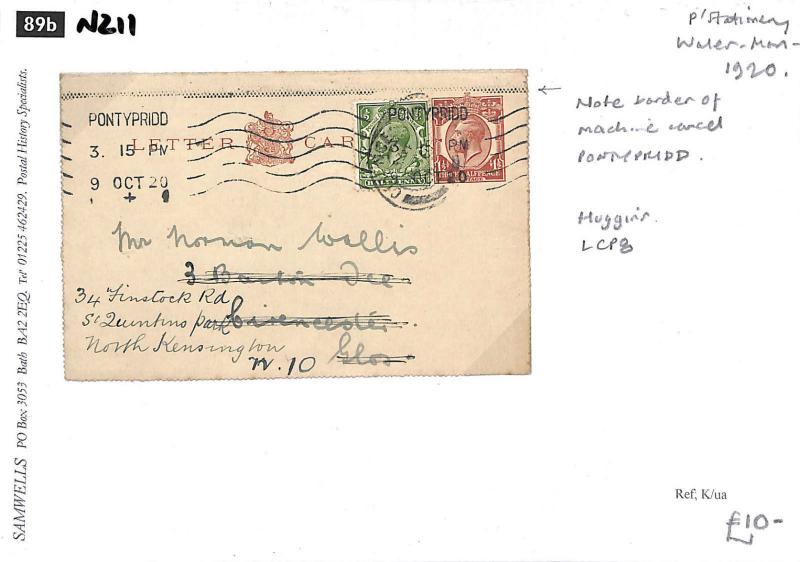 89b NZ11
P'Stationery
Wales-Mon-
1920.
Note border of
machine cancel
PONTYPRIDD.
Huggins.
LCP8
PONTYPRIDD
3. 15 PM
9 OCT 20
+
LETTER CARD
PONTYPRIDD
PM
HALFPENNY
THREE HALFPENCE
Mr Norman Wallis
3 Barton
Cirencester
Glos
34 Finstock Rd
St Quintins Park
North Kensington
W. 10
SAMWELLS PO Box 3053 Bath BA2 2EQ. Tel 01225 462429. Postal History Specialists.
Ref; K/ua
£10-